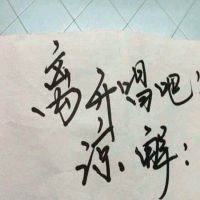 离开唱吧!
谅解: